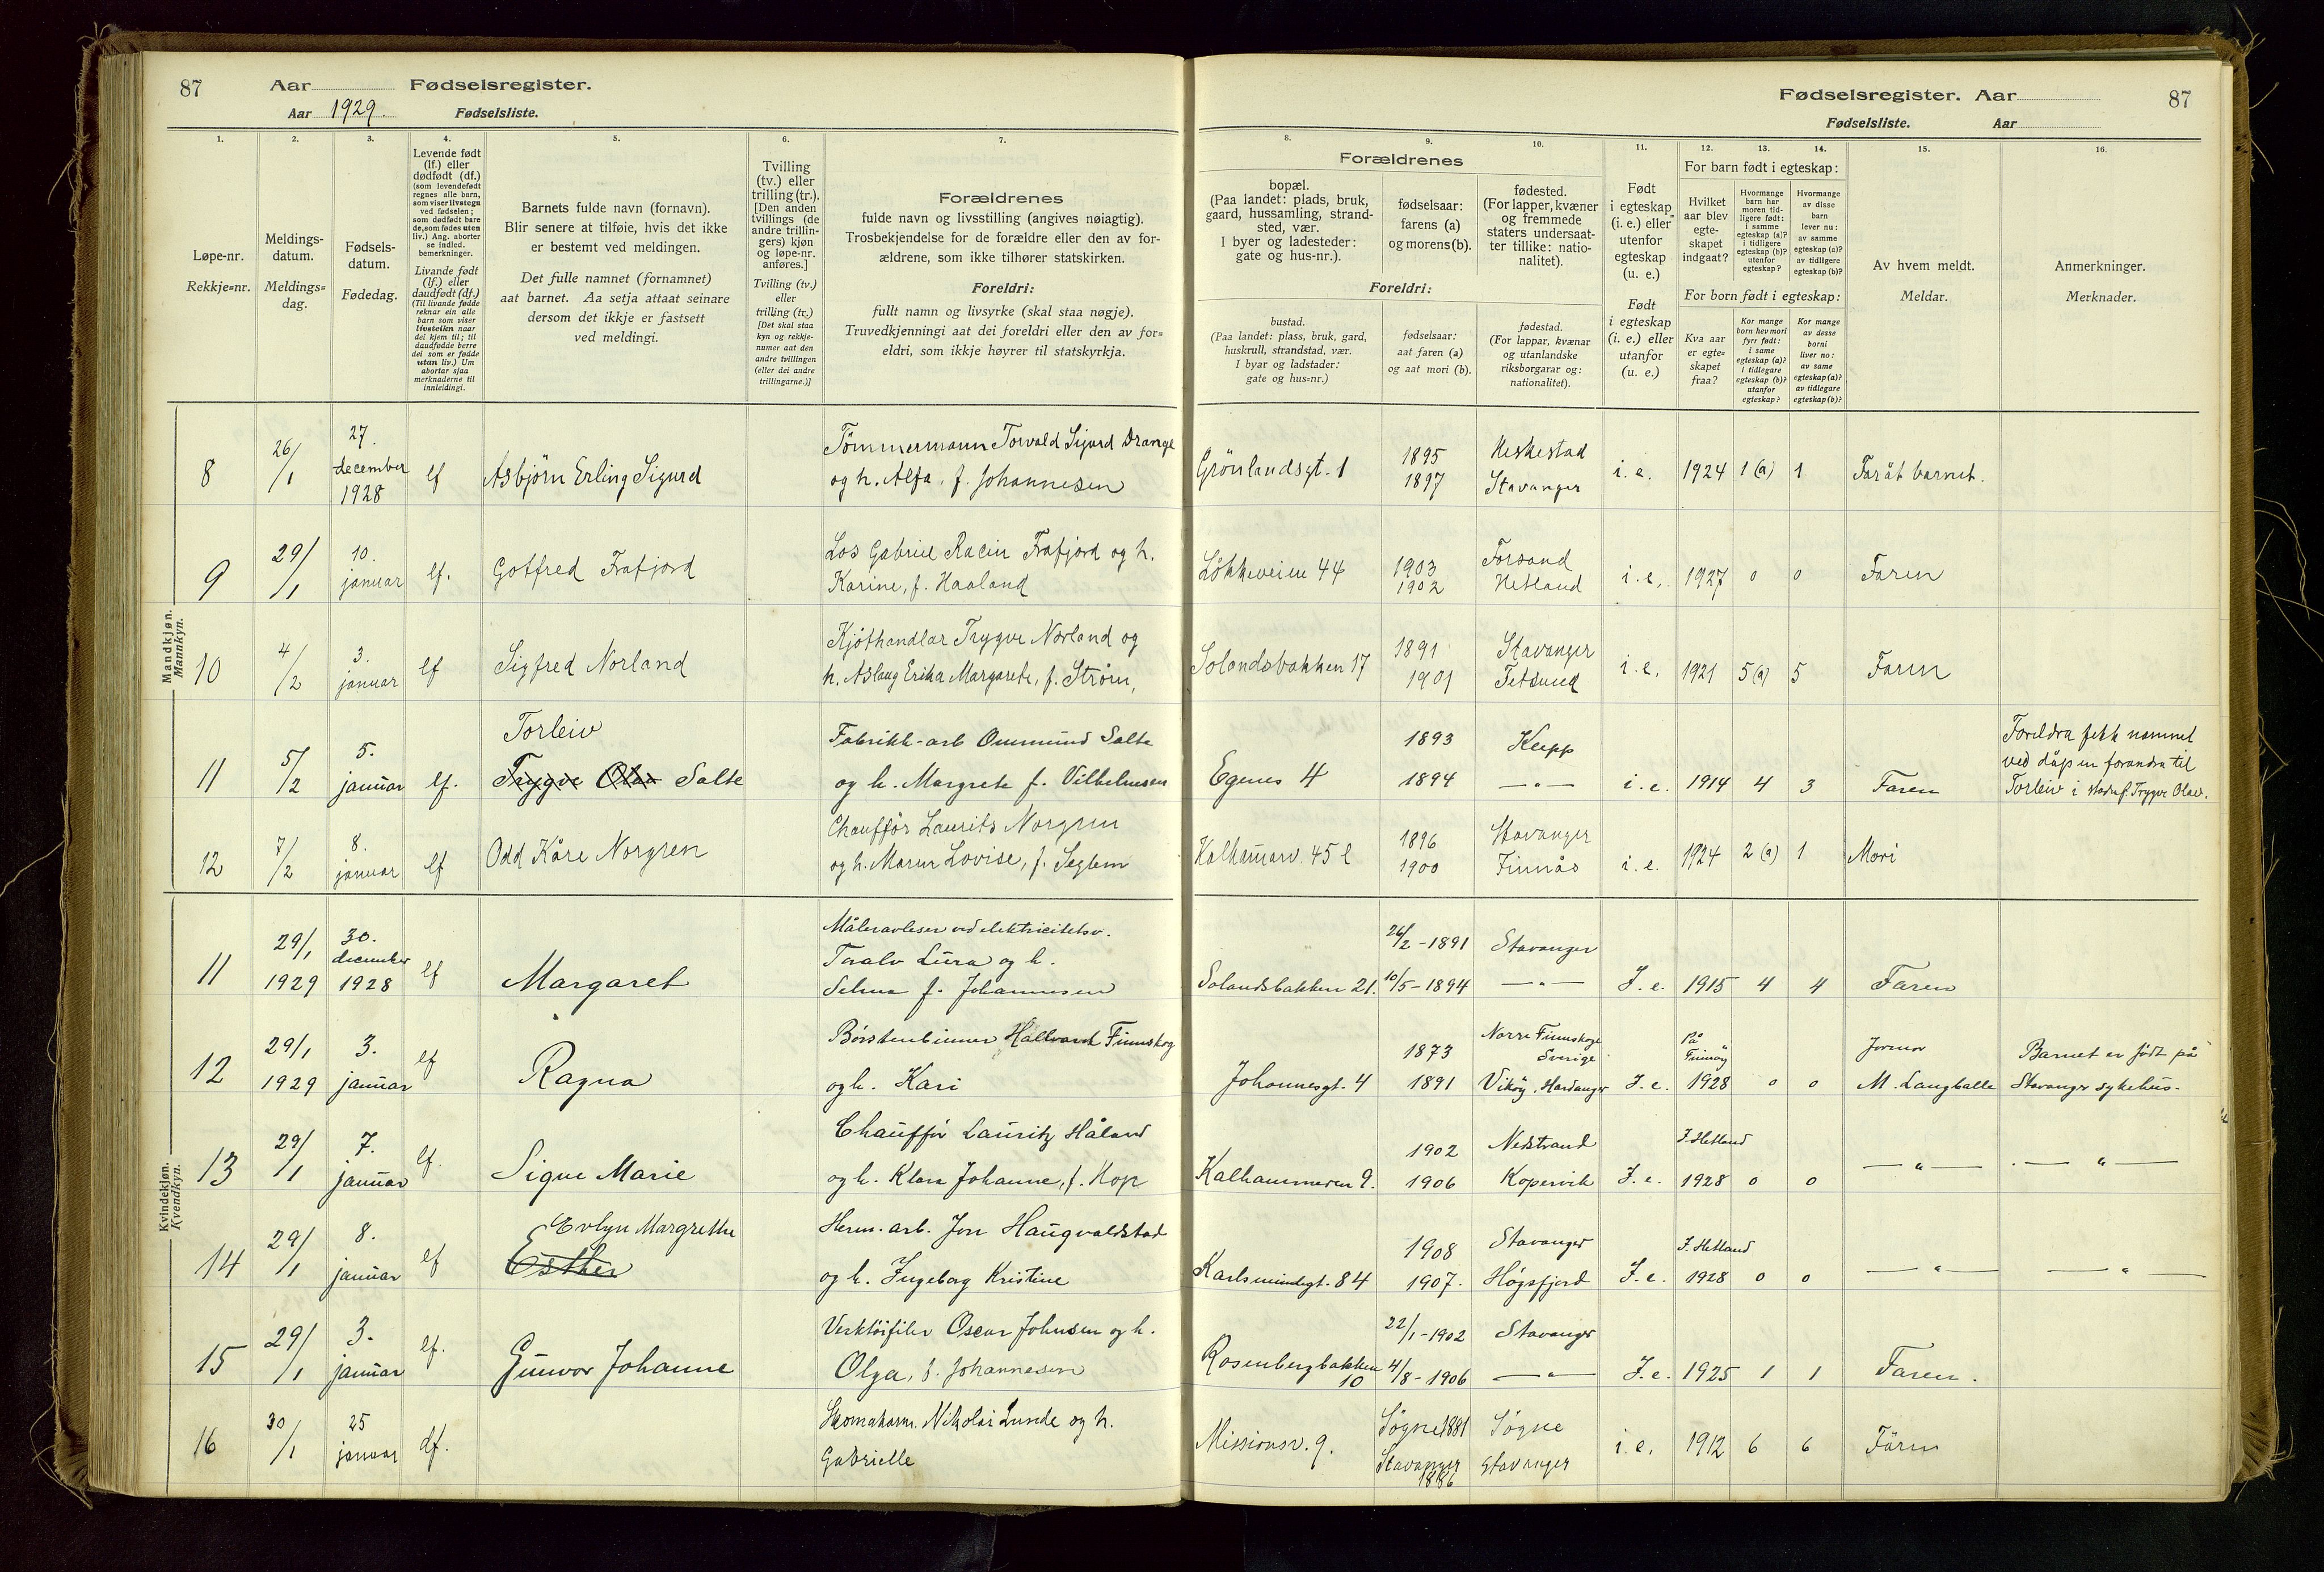 87 Aar Fødselsregister.
Aar 1929. Fødselsliste.
Fødselsregister. Aar 87
Fødselsliste. Aar
1. 2. 3. 4. 5. 6. 7.
8. 9. 10. 11. 12. 13. 14. 15. 16.
Løpe-nr.
Rekkje=nr.
Meldings-
datum.
Meldings=
dag.
Fødsels-
datum.
Fødedag.
Levende født
(lf.) eller
dødfødt (df.)
(som levendefødt
regnes alle barn,
som viser livstegn
ved fødselen;
som dødfødt bare
de, som fødes uten
liv.) Ang. aborter
se indled.
bemerkninger.
Livande født
(lf.) eller
daudfødt (df.)
(Til livande fødde
reknar ein alle
barn som viser
livsteikn naar
dei kjem til; til
daudfødde berre
dei som er fødde
utan liv.) Um
abortar sjaa
merknaderne til
innleidingi.
Barnets fulde navn (fornavn).
Blir senere at tilføie, hvis det ikke
er bestemt ved meldingen.
Det fulle namnet (fornamnet)
aat barnet. Aa setja attaat seinare
dersom det ikkje er fastsett
ved meldingi.
Tvilling
(tv.) eller
trilling (tr.).
[Den anden
tvillings (de
andre trillin-
gers) kjøn
og løpe-nr.
anføres.]
Tvilling (tv.)
eller
trilling (tr.)
[Det skal staa
kyn og rekkje-
numer aat den
andre tvillingen
(eller dei andre
trillingarne.)]
Forældrenes
fulde navn og livsstilling (angives nøiagtig).
Trosbekjendelse for de forældre eller den av for-
ældrene, som ikke tilhører statskirken.
Foreldri:
fullt namn og livsyrke (skal staa nøgje).
Truvedkjenningi aat dei foreldri eller den av for=
eldri, som ikkje høyrer til statskyrkja.
Forældrenes
bopæl.
(Paa landet: plads, bruk,
gaard, hussamling, strand-
sted, vær.
I byer og ladesteder:
gate og hus-nr.).
fødselsaar:
farens (a)
og morens (b).
fødested.
(For lapper, kvæner
og fremmede
staters undersaat-
ter tillike: natio-
nalitet).
Foreldri:
bustad.
(Paa landet: plass, bruk, gard,
huskrull, strandstad, vær.
I byar og ladstader:
gate og hus-nr.)
fødselsaar:
aat faren (a)
og aat mori (b).
fødestad.
(For lappar, kvænar
og utanlandske
riksborgarar og:
nationalitet).
Født
i egteskap
(i. e.) eller
utenfor
egteskap
(u. e.)
Født
i egteskap
(i. e.) eller
utanfor
(u. e.)
For barn født i egteskap:
Hvilket
aar blev
egte-
skapet
indgaat?
Hvormange
barn har
moren tid-
ligere født:
i samme
egteskap (a)?
i tidligere
egteskap (b)?
utenfor
egteskap?
Hvormange
av disse
barn
lever nu:
av samme
egteskap (a)?
av tidligere
egteskap (b)?
For born født i egteskap:
Kva aar
er egte=
skapet
fraa?
Kor mange
born hev mori
fyrr født:
i same
egteskap (a)?
i tidlegare
egteskap (b)?
utanfor
egteskap?
Kor mange
av desse
borni
liver no:
av same
egteskap (a)?
av tidlegare
egteskap (b)?
Av hvem meldt.
Meldar.
Anmerkninger.
Merknader.
Mandkjøn.
Mannkyn.
8 26/1 27. december 1928 lf Asbjörn Erling Sigurd
Tömmermann Torvald Sigurd Drange
og h. Alfa, f. Johannesen
Grönlandsgt. 1 1895 Heskestad
1897 Stavanger i. e. 1924 1 (a) 1
9 29/1 10. januar lf. Gotfred Frafjord
Los Gabriel Racin Frafjord og h.
Karine, f. Haaland
Lökkeveien 44 1903 Forsand
1902 Hetland i. e. 1927 0 0 Faren
10 4/2 3. januar lf Sigfred Norland
Kjöthandlar Trygve Norland og
h. Aslaug Erika Margarete, f. Ström,
Solandsbakken 17 1891 Stavanger
1901 i. e. 1921 5 (a) 5 Faren
11 5/2 5. januar lf. Torleiv
Trygve Olav Salte
Fabrikk-arb Ommund Salte
og h. Margrete f. Vilhelmsen
Egenes 4 1893 Klepp
1894 —"— i. e. 1914 4 3 Faren
Foreldra fekk namnet
ved dåpen forandra til
Torleiv i stadenf. Trygve Olav.
12 7/2 8. januar lf Odd Kåre Norgren
Chaufför Laurits Norgren
og h. Maren Lovise, f. Seglem
Kalhamarv. 45 1896 Stavanger
1900 Finnås i. e. 1924 2 (a) 1 Mori
Kvindekjøn.
Kvendkyn.
11 29/1 1929 30. december 1928 lf Margaret
Måleravleser ved elektricitetsv.
Taralv Lura og h.
Selma f. Johannesen
Solandsbakken 21. 26/2-1891 Stavanger
10/5-1894 —"— I. e. 1915 4 4 Faren
12 29/1 1929 3. januar lf Ragna
Börstenbinner Hallvard Finnskog
og h. Kari
Johannesgt. 4 1873 Norre Finnskoge Sverige
1891 Viköy, Hardanger I. e. På Finnöy 1928 0 0
Jormor
M. Langballe
Barnet er födt på
Stavanger sykehus.
13 29/1 7. januar lf. Signe Marie
Chaufför Lauritz Håland
og h. Klara Johanne, f. Hop
Kalhammeren 9. 1902 Nedstrand
1906 Kopervik I. e. I. Hetland 1928 0 0 —"— —"—
14 29/1 8. januar lf Evlyn Margrethe
Esther
Herm. arb. Jon Haugvaldstad
og h. Ingeborg Kristine
Karlsminnegt. 84 1908 Stavanger
1907. Högsfjord I. e. I. Hetland 1928 0 0 —"— —"—
15 29/1 3. januar lf. Gunvor Johanne
Verktöifiler Oscar Johnsen og h.
Olga, f. Johannesen
Rosenbergbakken 10 22/1-1902 Stavanger
4/8-1906 —"— I. e. 1925 1 1 Faren.
16 30/1 25 januar df.
Skomakarm. Nikolai Lunde og h.
Gabrielle
Missionsv. 9. Sögne 1881 Sögne
Stavanger 1886 Stavanger i. e. 1912 6 6 Faren